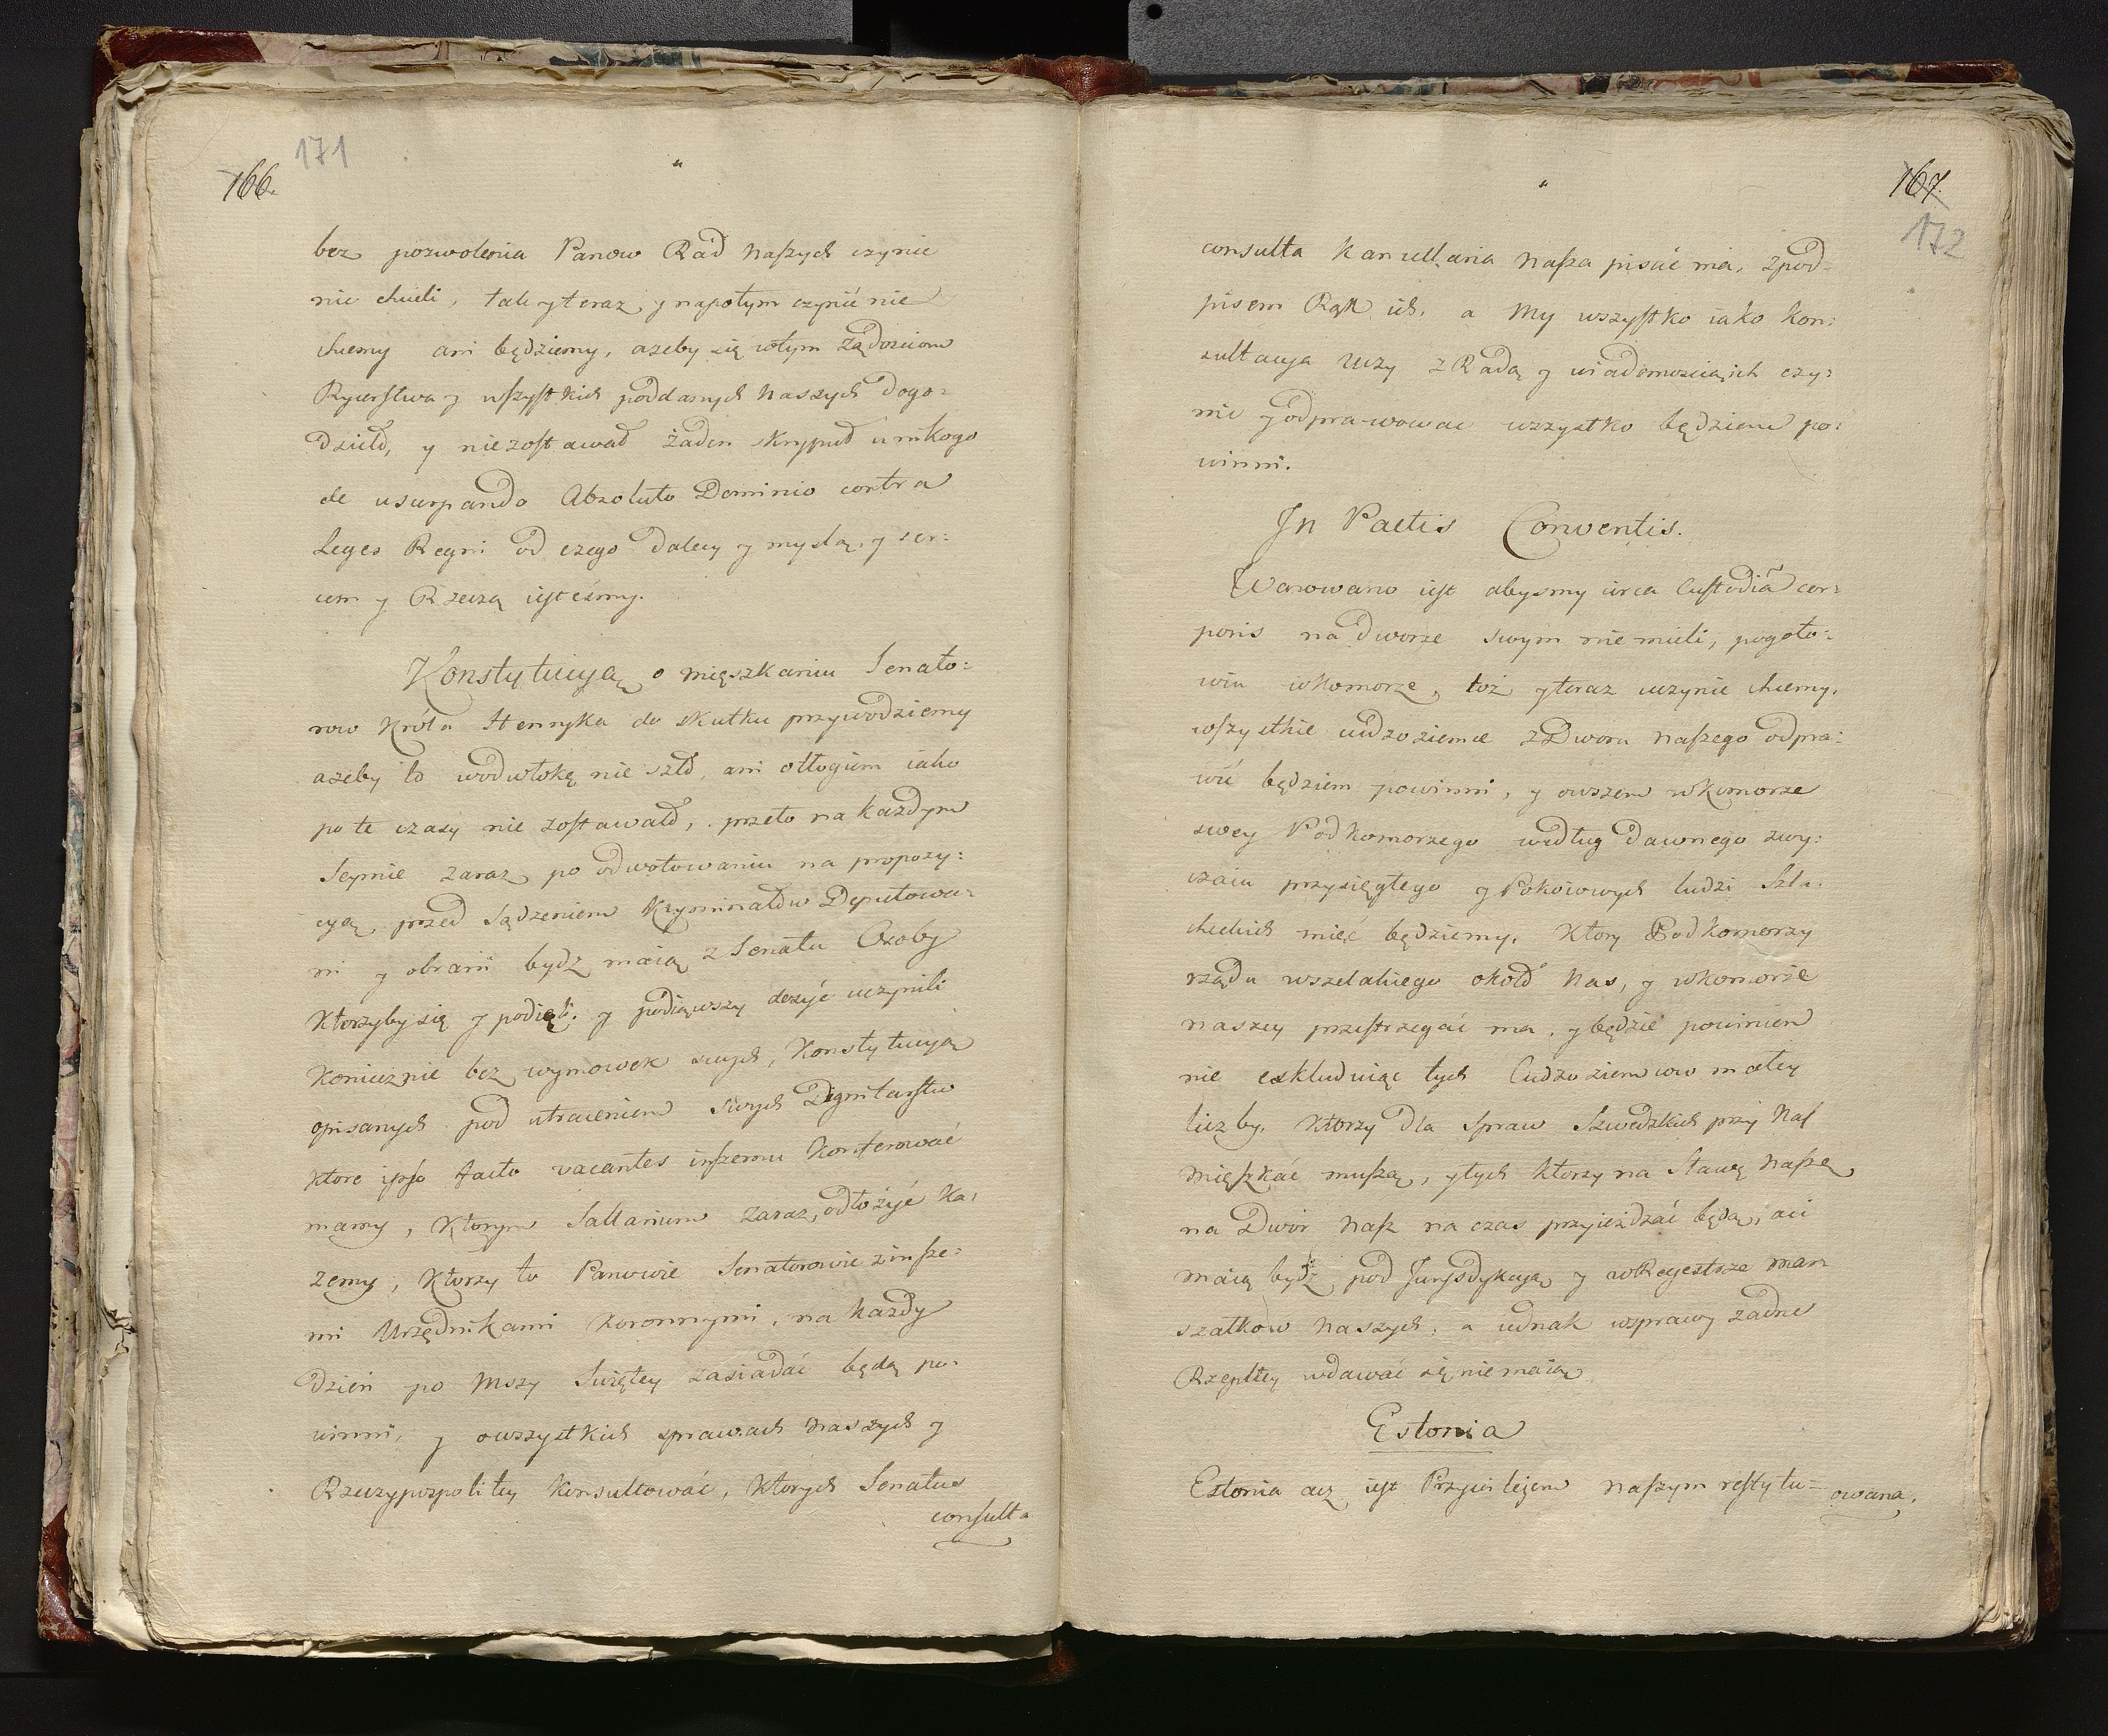 171
166.
bez pozwolenia Panow Rad naszych czynic
nie chcieli, tak y teraz y napotym czynić nie
chcemy ani będziemy, azeby się wtym Ządościom
Rycerstwa y wszystkich poddanych naszych dogo=
dziło, y niezostawał żaden skrypuł unikogo
de usurpando Absoluto Dominio contra
Leges Regni od czego dalecy y myslą, y ser=
cem y Rzeczą iesteśmy.
Konstytucyą o mięszkaniu Senato=
row Króla Henryka do skutku przywodziemy
azeby to wodwłokę nie szło, ani otłogiem iako
po te czasy nie zostawało, przeto na kazdym
Seymie zaraz po odwotowaniu na propozy=
cyą, przed Sądzeniem Kryminałow Deputowa=
ni y obrani bydz maią z Senatu Osoby
Ktorzyby się y podięli. y podiąwszy dosyć uczynili
Koniecznie bez wymowek swych, Konstytucyą
opisanych pod utraceniem swych Dignitarstw
Ktore ipso facto vacantes inszemu Konferować
mamy, Ktorym Sallarium zaraz, odłożyć Ka=
zemy, Ktorzy to Panowie Senatorowie zinsze=
mi Urzędnikami Koronnymi, na kazdy
Dzień po Mszy Swiętey zasiadać będą po=
winni, y owszystkich sprawach naszych y
Rzeczypospolitey Konsultować, Ktorych Senatus
consulta
167.
172
consulta Kancellaria nasza pisać ma, zpod=
pisem Rąk ich, a My wszystko iako kon=
sultacya uczy z Radą y wiadomością ich czy=
nic y odprawowac wszystko będziem po=
winni.
In Pactis Conventis.
Warowano iest abysmy circa Custodiã cor=
poris na Dworze swym nie mieli, pogoto=
wiu wKomorze, toż y teraz uczynic chcemy.
wszystkie cudzoziemce z Dworu naszego odpra=
wić będziem powinni, y owszem wKomorze
swey Podkomorzego według dawnego zwy=
czaiu przysięgłego y Pokoiowych ludzi Szla=
checkich mieć będziemy. Ktory Podkomorzy
rządu wszelakiego około Nas, y wKomorze
naszey przestrzegać ma, y będzie powinien
nie exkluduiąc tych Cudzoziemcow małey
liczby. Ktorzy dla Spraw Szwedzkich przy Nas
mięszkać muszą, y tych ktorzy na Sławę naszą
na Dwór nasz na czas przyieżdzać będą, aci
maią bydź pod Jurysdykcyą y wReyestrze mar=
szałkow naszych, a iednak wsprawy zadne
Rzeptey wdawać się nie maią
Estonia
Estonia acz iest Przywileiem naszym restytu=
owana,